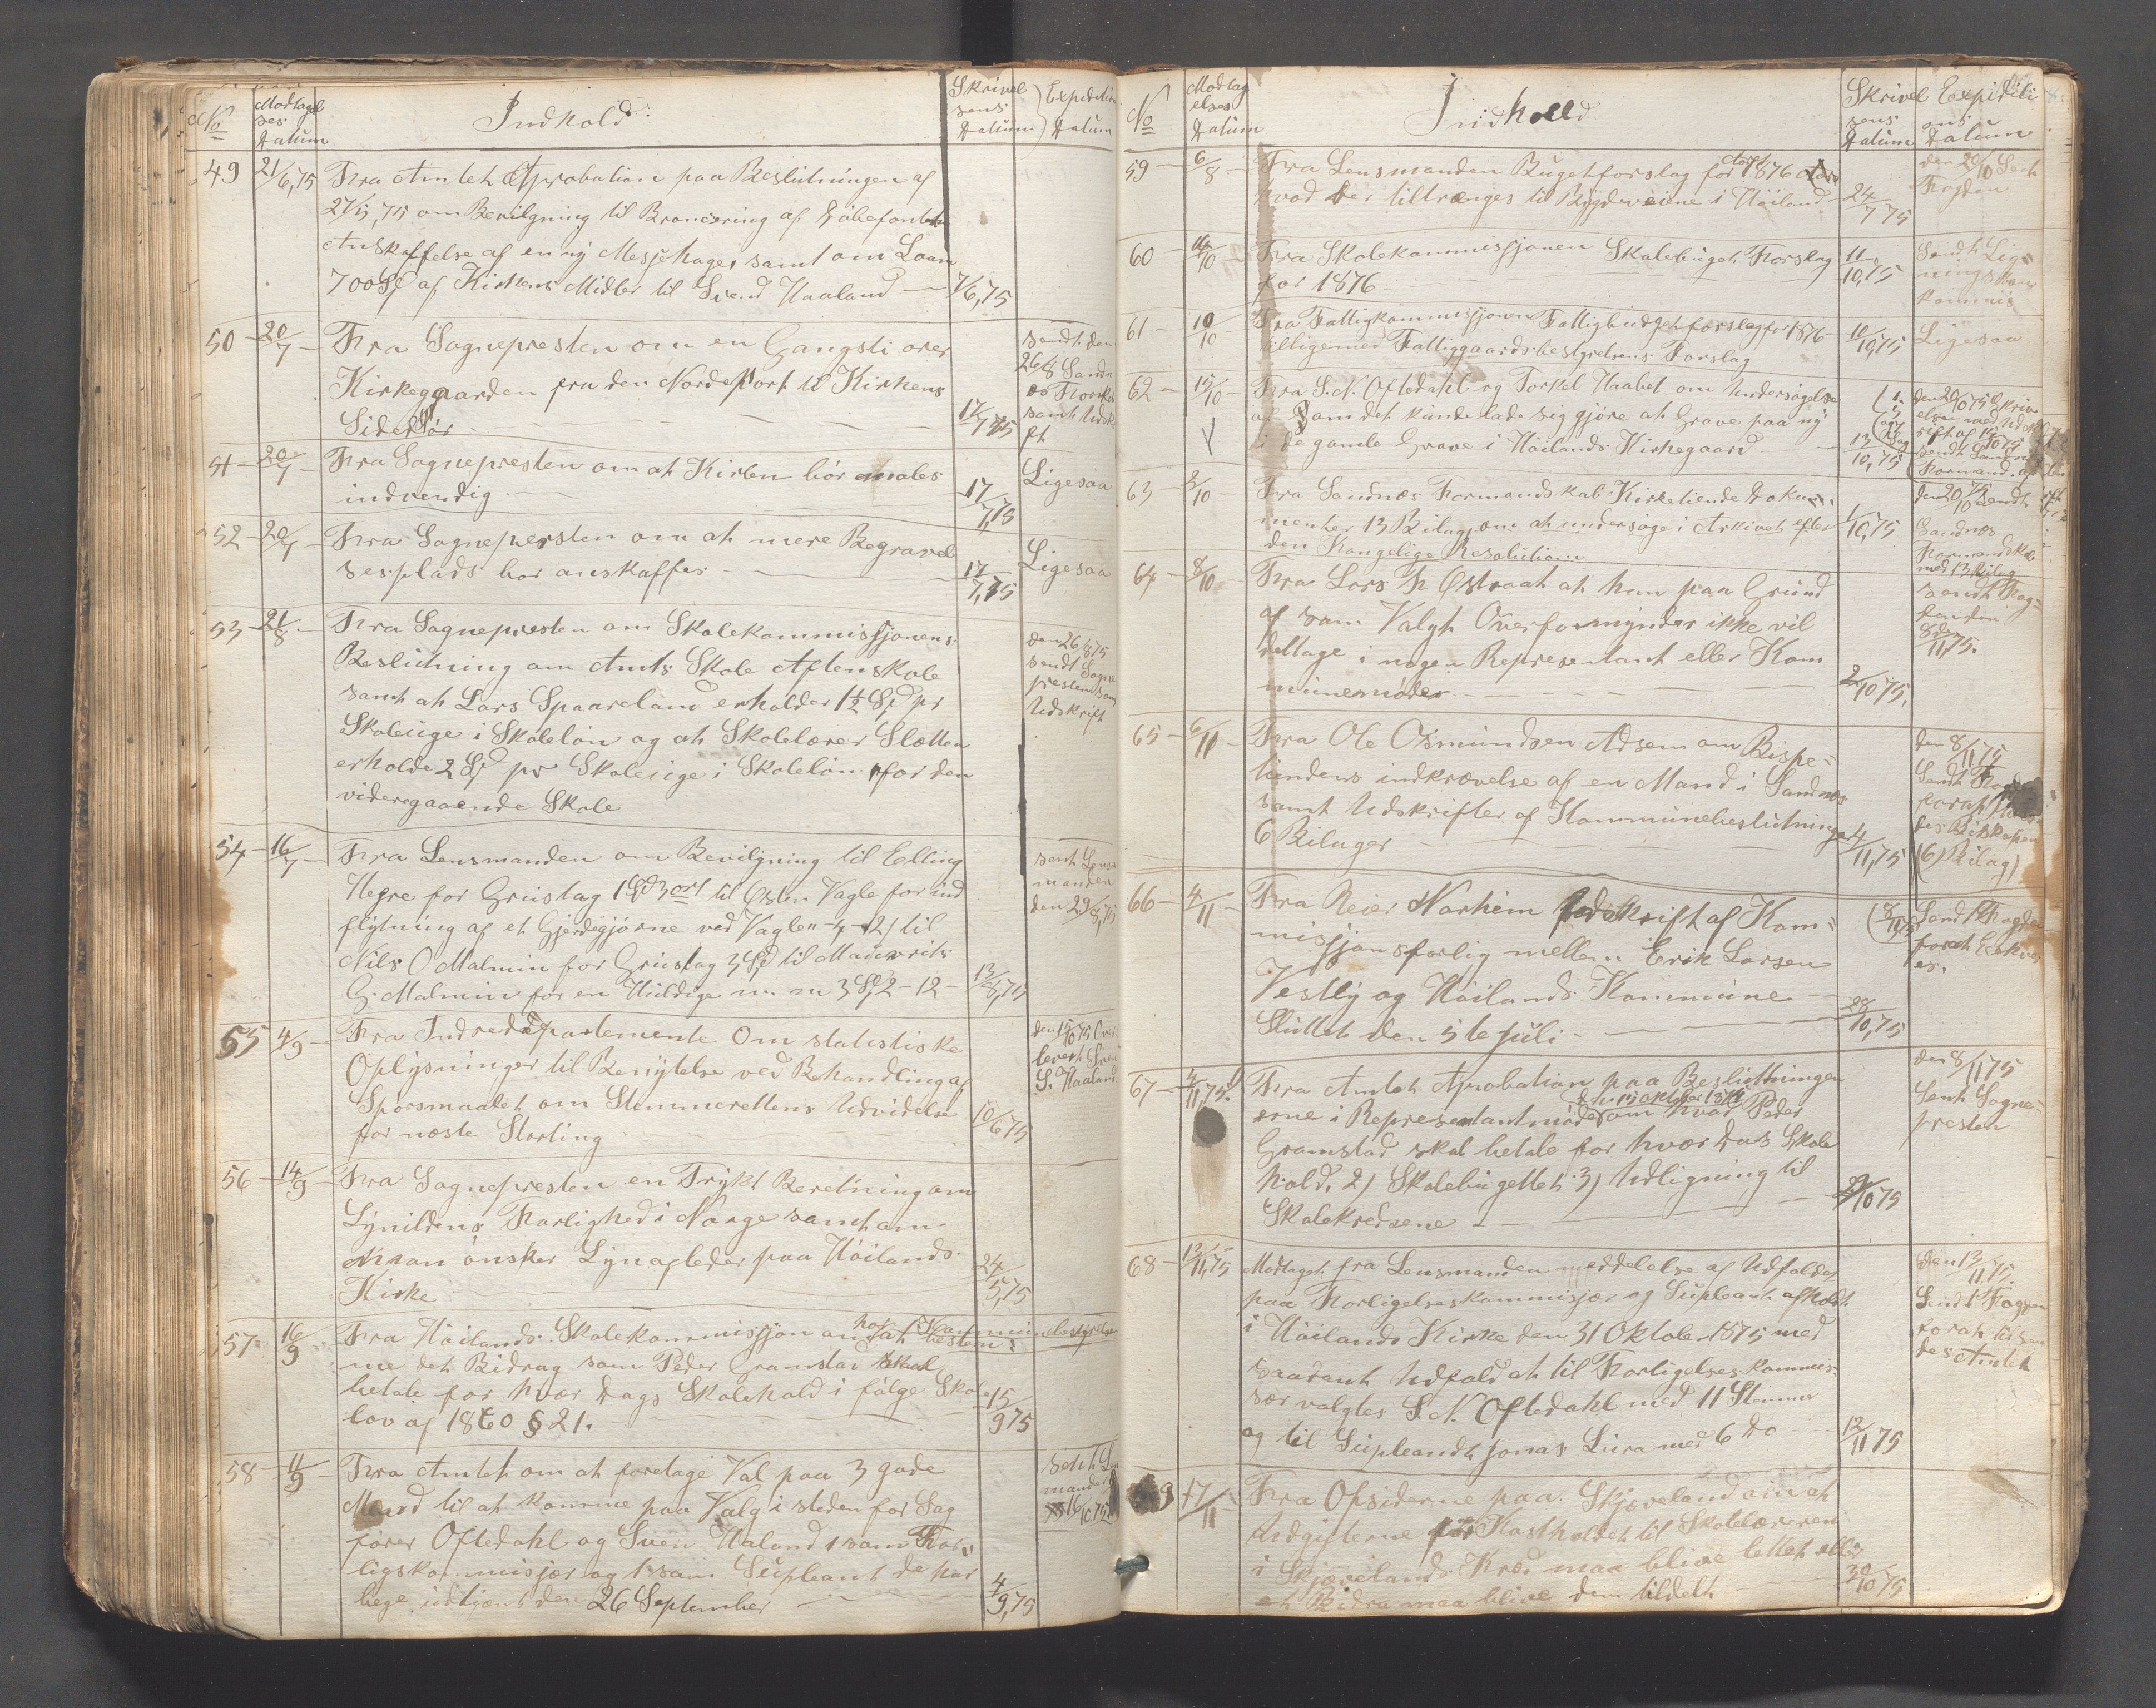 No
Modtagel
ses
Datum
Indhold
Skrivel
sens
Datum
Expeditions
Datum
49 21/6,75 Fra Amtet Aprobation paa Beslutningen af
27/5,75 om Bevilgning til Broncering af Döbefonten
Anskaffelse af en ny Messehagel samt om Laan
700 Spd af Kirkens Midler til Svend Haaland 7/6,75
50 20/7 Fra Sognepresten om en Gangsti over
Kirkegaarden fra den Nordre Port til Kirkens
Sidedör 17/7 75
sendt den
26/8 Sand
es Form
samt Udsk
ft
51 20/7 Fra Sognepresten om at Kirken bör males
indvendig 17/7,75
Ligesaa
52 20/7 Fra Sognepresten om at mere Begravel
sesplads bör anskaffes 17/7,75
Ligesaa
53 21/8 Fra Sognepresten om Skolekommissjonens
Beslutning om Amts Skole Aftenskole
samt at Lars Spaareland erholder 1½ Spd pr
Skoleuge i Skolelön og at Skolelærer Sletten
erholde 2 Spd pr Skoleuge i Skolelön for den
videregaaende Skole
den 26/8 75
sendt Sogne
presten som
Udskrift
54 16/7 Fra Lensmanden om Bevilgning til Elling
Hegre for Grustag 1 Spd 3 ort til Østen Vagle for ind
flytning af et Gjerdigjörne ved Vagle 4 - 12) til
Nils O Malmin for Grustag 3 Spd til Mauerits
G. Malmin for en Huldige m m 3 Spd 2 - 12 - 13/8,75
sent Lens
manden
den 29/8,75
55 4/9 Fra Indredepartemente Om statistiske
Oplysninger til Benyttelse ved Behandling af
Sporsmaalet om Stemmerettens Udvidelse
for næste Storting 10/6 75
den 15/10 75 Over
levert Sven
S. Haaland
56 14/9 Fra Sognepresten en Trykt Beretning om
Lynildens Farlighed i Norge samt om
man önsker Lynafleder paa Höilands
Kirke 24/5,75
57 16/9 Fra Höilands Skolekommissjon om at Kommunebestyrelsen
me det Bidrag som Peder Gramstad skal
betale for hver Dags Skolehold i fölge Skole
lov af 1860 § 21. 15/9 75
58 11/9 Fra Amtet om at foretage Val paa 3 gode
Mænd til at komme paa Valg i steden for Sag
förer Oftedahl og Sven Haland 1 som Forli
ligskommisjær og 1 som Supleant de har
bege udtjent den 26 September 4/9,75
sent Lens
manden
16/10 75
No
Modtag
elses
Datum
Indhold
Skrivel
sens
Datum
Expediti
ons
Datum
59 6/8 Fra Lensmanden Bugetforslag for 1876 over
hvad der tiltrænges til Bygdeveiene i Höiland 24/7 75
den 20/10 Sent
Fogden
60 14/10 Fra Skolekommissjonen Skolebuget Forslag
for 1876 11/10,75
Sendt Lig
nings
kommis
61 10/10 Fra Fattigkommissjonen Fattigbudgetforslag for 1876
tilligemed Fattiggaardsbestyrelsens Forslag 10/10,75
Ligesaa
62 15/10 Fra S. N. Oftedahl og Torkel Haabet om Undersögelse
af Som det kunde lade sig gjöre at Grave paa ny
i de gamle Grave i Höilands Kirkegaard 13/10,75
63 3/10 Fra Sandnes Formandskab Kirketiende Doku
menter 13 Bilag, om at undersöge i Arkivet efter
den Kongelige Resolution 1/10,75
den 20/10 75 sendt
Sandnes
Formandskab
med 13 Bilag
64 8/10 Fra Lars Fr Østraat at han paa Grund
af som Valgt Overformynder ikke vil
deltage i nogen Representant eller Kom
munemöder 2/10 75.
sendt Fog
den den
8/11 75.
65 6/11 Fra Ole Osmundsen Adsem om Bispe=
tiendens indkrævelse af en Mand i Sandnes
samt Udskrifter af Kommunebeslutninger
6 Bilager 4/11,75
den 8/11 75
Sendt
Biskopen
(6) Bilag)
66 4/11 Fra Reier Norheim Udskrift af Kom=
missjonsforlig mellem Erik Larsen
Vestly og Höilands Kommune
Sluttet den 5te Juli 28/10,75
Sendt Fogden
forat Erhver
es.
67 4/11,75 Fra Amtet Aprobation paa Beslutningen
erne i Representantmöde om hvad Peder
Gramstad skal betale for hver Das Skole
hold, 2) Skolebugettet 3) Udligning til
Skolekredsene 29/10 75
den 8/11 75
Sent Sogne=
presten
68 13/11,75 Modtaget fra Lensmanden meddelelse af Udfaldet
paa Forligelseskommisjær og Supleant afholdt
i Höilands Kirke den 31 Oktober 1875 med
saadant Udfald at til Forligelses-kommis=
sær valgtes S. N. Oftedahl med 11 Stemmer
og til Supleandt Jonas Lura med 6 Do 12/11 75
den 13/11 75.
Sendt Fogden
forat tilsen
des Amtet
69 17/11 Fra Opsiderne paa Skjæveland om at
Udgifterne for Kostholdet til Skolelæreren
i Skjævelands Kred maa blive lettet eller
et Bidra maa blive dem tildelt 30/10 75